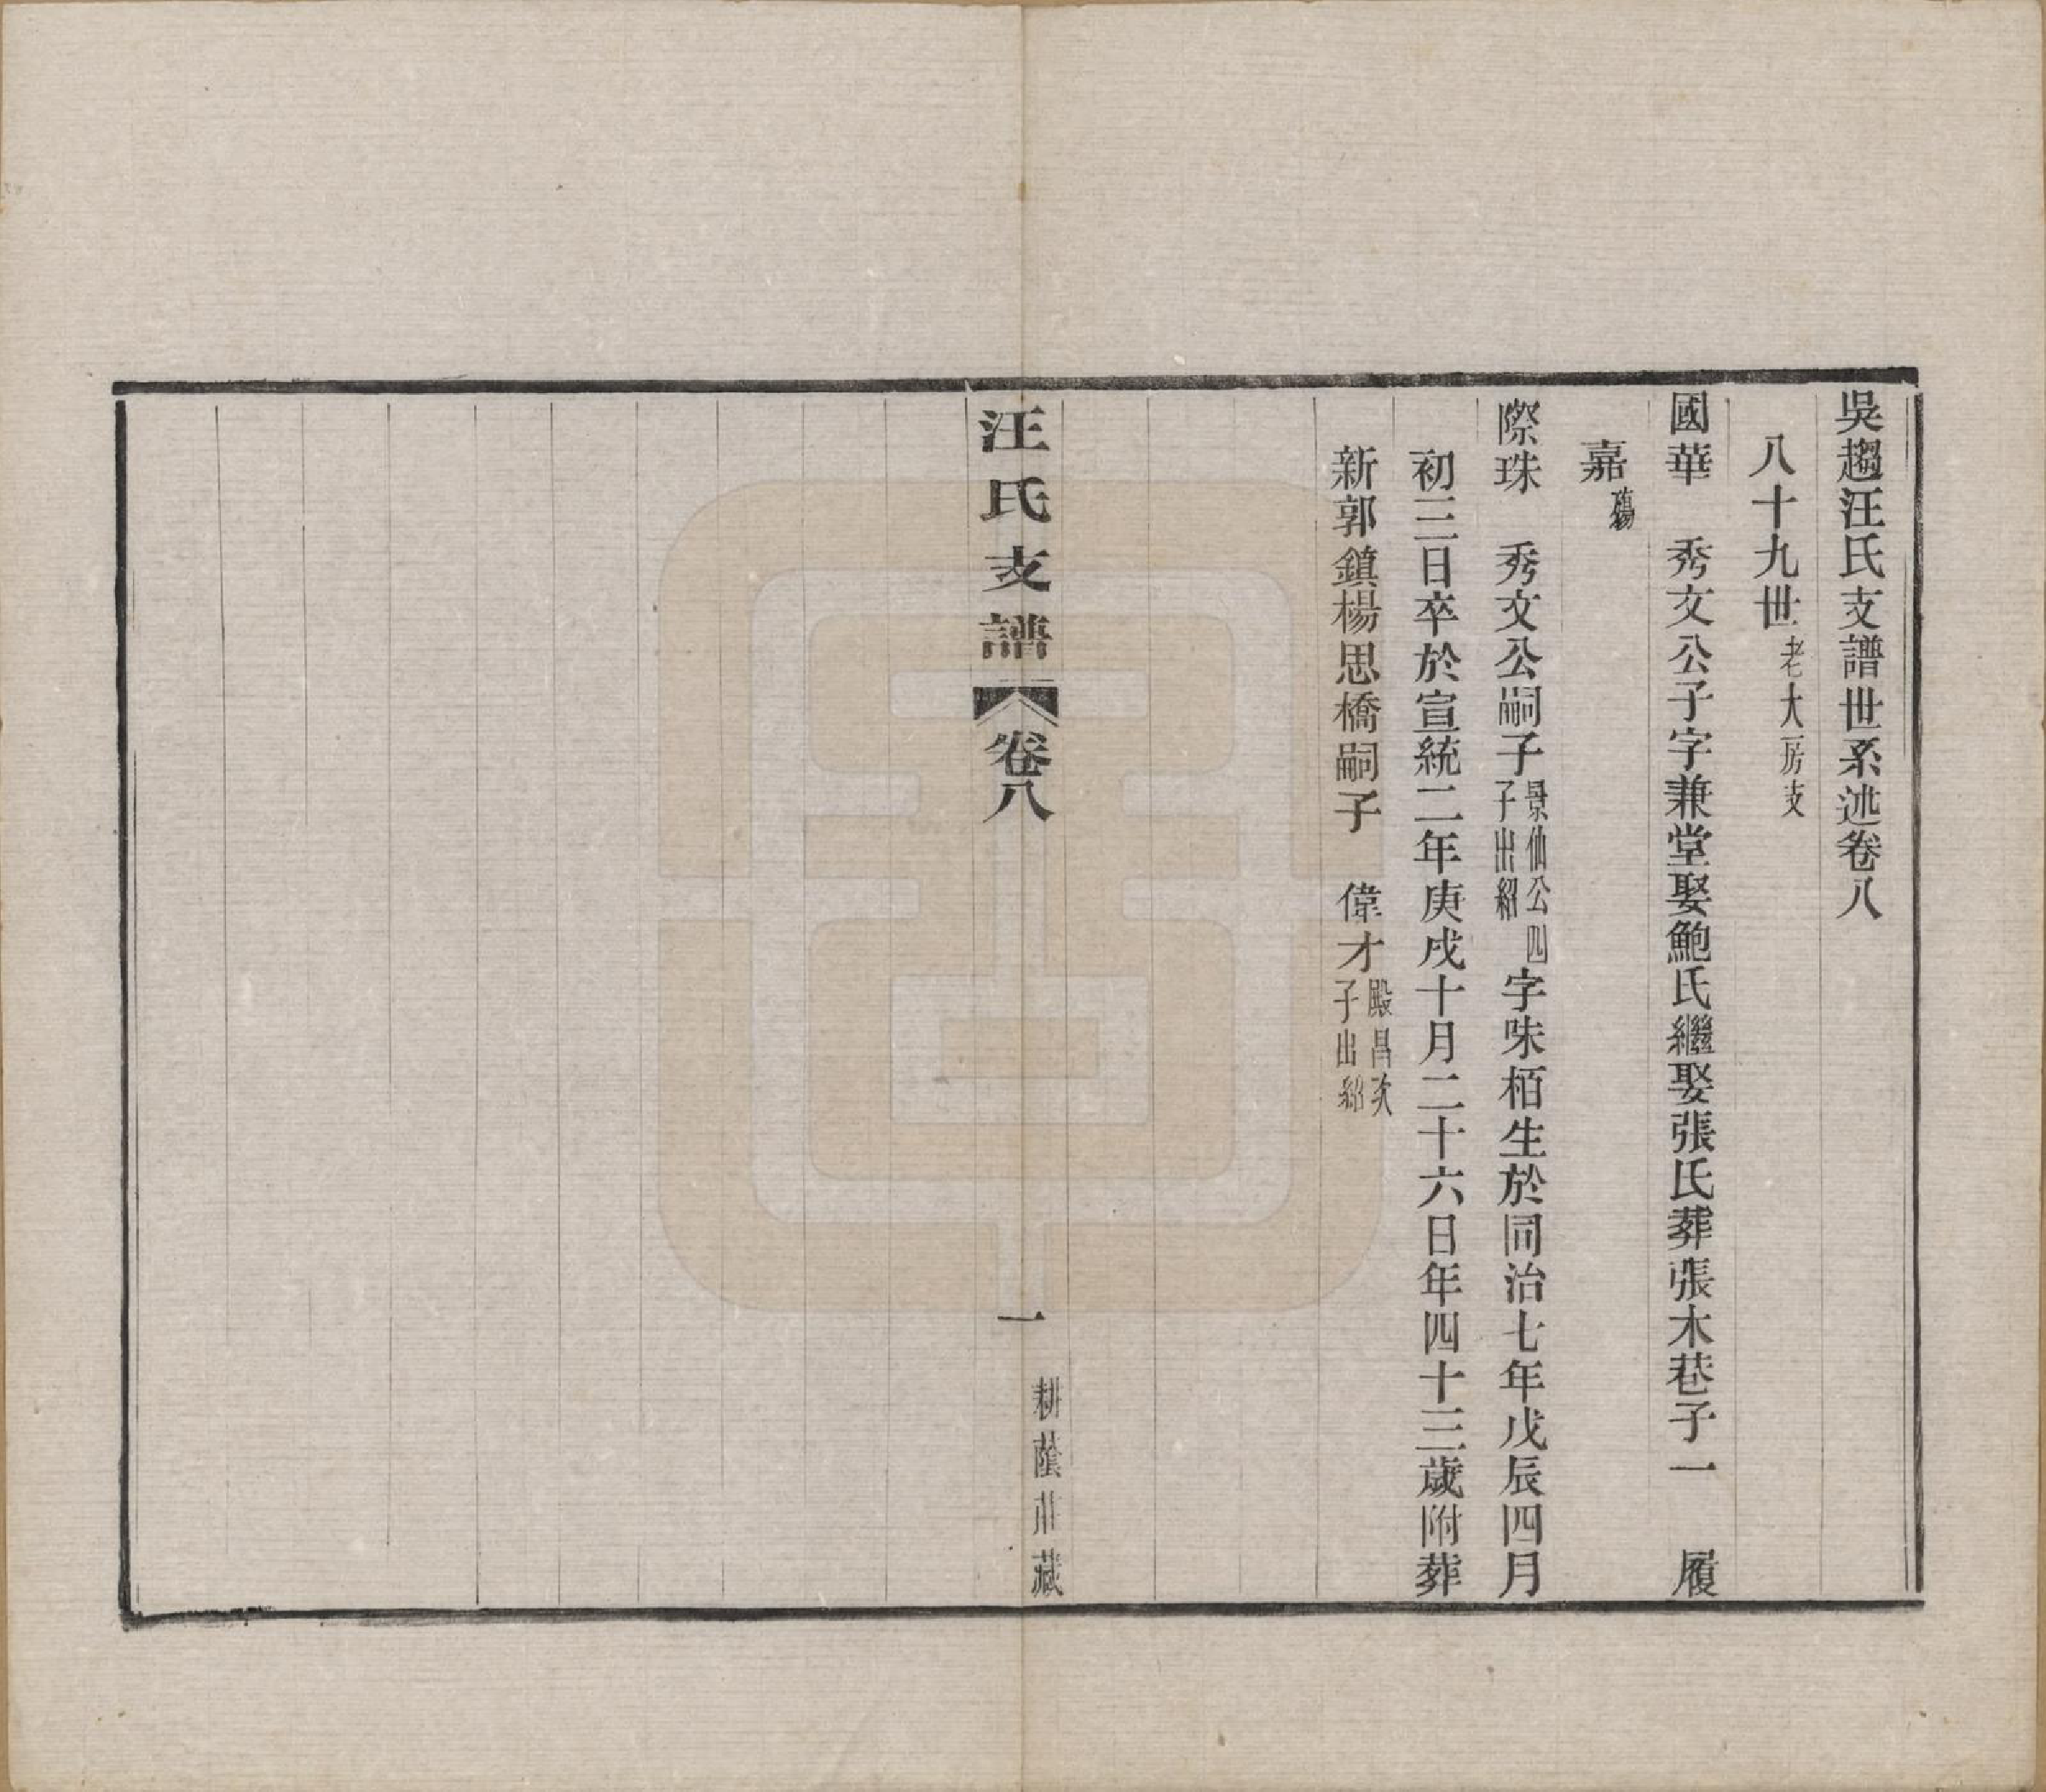 吳趨汪氏支譜世系述卷八
八十九世老大房支
國華　秀文公子字兼堂娶鮑氏繼娶張氏葬張木巷子一　履
嘉殤
際珠　秀文公嗣子景仙公四子出紹字味栢生於同治七年戊辰四月
初三日卒於宣統二年庚戌十月二十六日年四十三歲附葬
新郭鎮楊思橋嗣子　偉才殿昌次子出紹
汪氏支譜　卷八　一　耕蔭莊藏